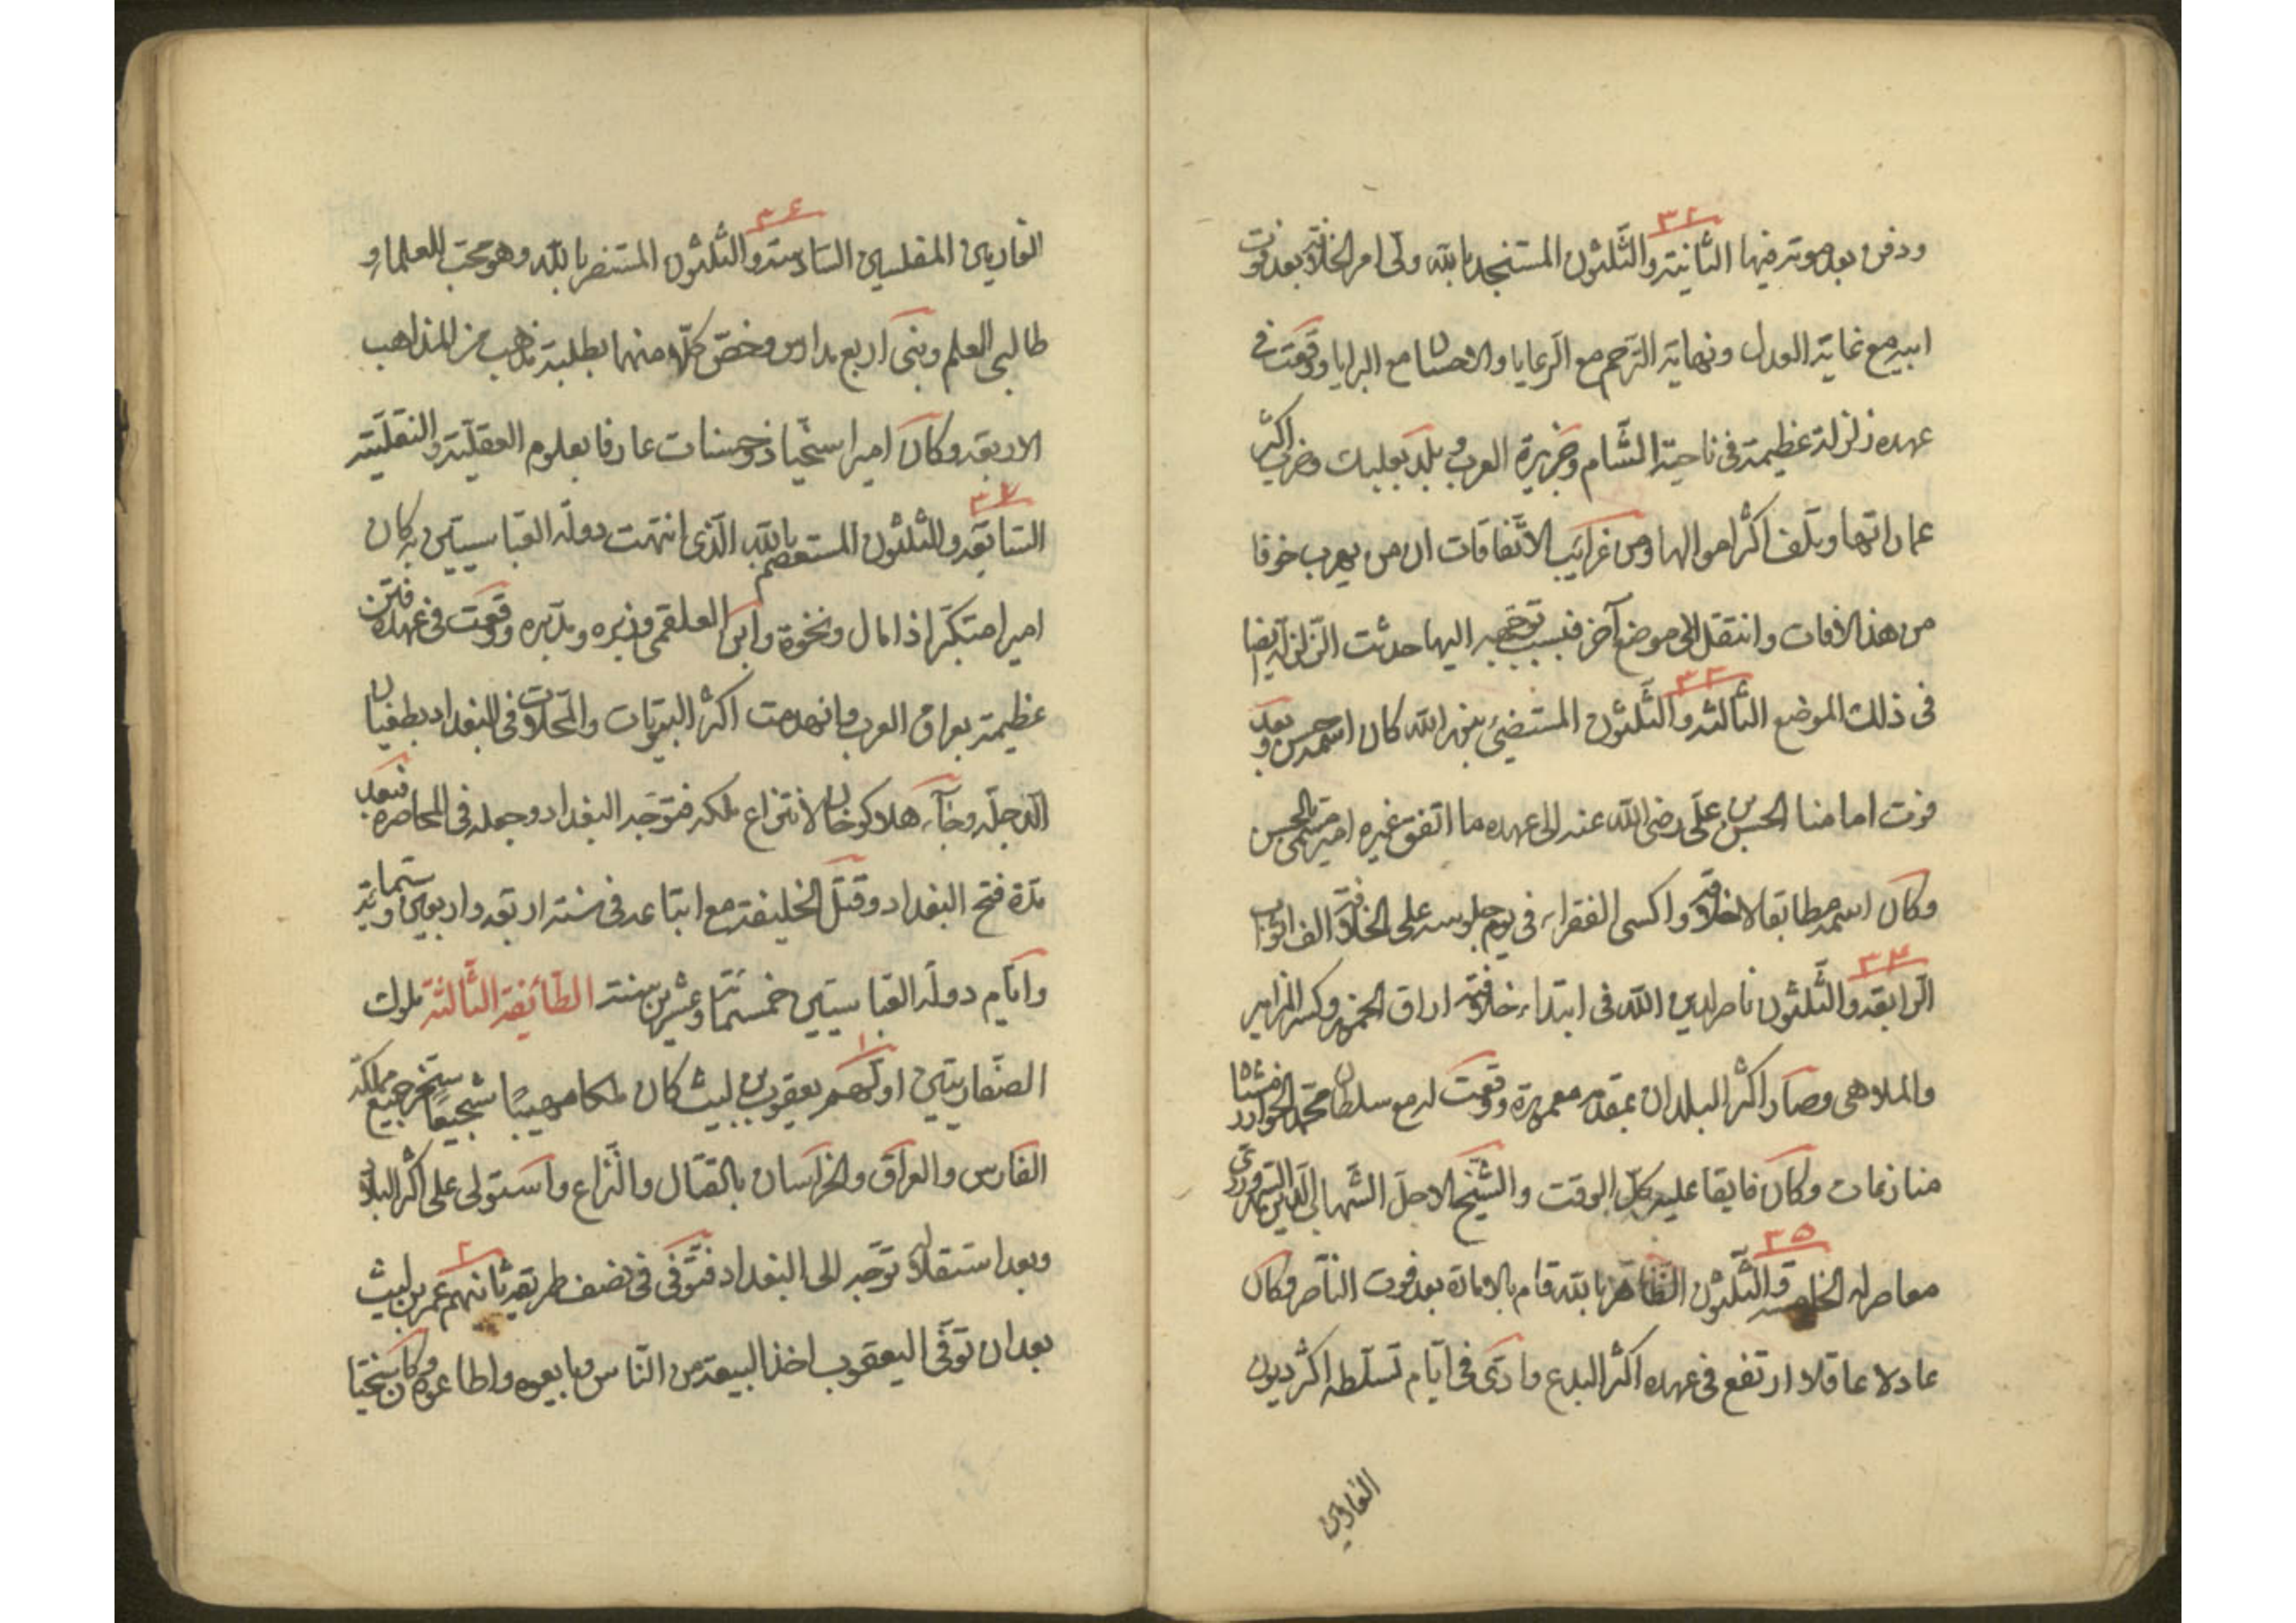 ٣٢
ودفن بعد موته فيها الثانية والثلثون المستنجد بالله ولى امر الخلافة بعد فوت
ابيه مع غاية العدل ونهاية الترحم مع الرعايا والاحسان مع البرايا ووقعت فى
عهده زلزلة عظيمة فى ناحية الشام وجزيرة العرب و بلد بعلبك وخرب اكثر
عماراتها وتلف اكثر اموالها ومن غرايب الاتفاقات ان من يهرب خوفا
من هذا الافات وانتقل الى موضع آخر فبسبب توجهه اليها حدثت الزلزلة ايضا
٣٣
فى ذلك الموضع الثالثة والثلثون المستضئ بنور الله كان اسمه حسن وبعد
فوت امامنا الحسن بن على رضى الله عنه الى عهده ما اتفق غيره امير مسمى بالحسن
وكان اسمه مطابقا لاخلاقه واكسى الفقراء فى يوم جلوسه على الخلافة الف اثواب
٣٤
الرابعة والثلثون ناصر لدين الله فى ابتداء خلافته اراق الخمور وكسر المزامير
والملاهى وصار اكثر البلدان بمقدمه معمورة ووقعت له مع سلطان محمد الخوارزمشاه
منازعات وكان فايقا عليه كل الوقت والشيخ الاجل الشهاب الدين السهروردى
٣٥
معاصر له الخامسة والثلثون الظاهر بالله قام بالامارة بعد فوت الناصر وكان
عادلا عاقلا ارتفع فى عهده اكثر البدع وادى فى ايام تسلطه اكثر ديون
الغارمين
٣٦
الغارمين المفلسين السادسة والثلثون المستنصر بالله وهو محب للعلماء و
طالبى العلم وبنى اربع مدارس وخص كلا منها بطلبة مذهب من المذاهب
الاربعة وكان اميرا سخيا ذو حسنات عارفا بعلوم العقلية والنقلية
٣٧
السابعة والثلثون المستعصم بالله الذى انتهت دولة العباسيين به كان
اميرا متكبرا ذا مال ونخوة وابن العلقمى وزيره ومدبره ووقعت فى عهده فتن
عظيمة بعراق العرب وانهدمت اكثر البيوتات والمحلات فى البغداد بطغيان
الدجلة وجآء هلاكو خان لانتزاع ملكه فتوجه البغداد وجعله فى المحاصرة فبعد
مدة فتح البغداد وقتل الخليفة مع اتباعه فى سنة اربعة واربعين وستمائة
وايام دولة العباسيين خمسمائة وعشرين سنة الطائفة الثالثة ملوك
١
الصفاريين اولهم يعقوب بن ليث كان ملكا مهيبا شجيعا سخر جميع مملكة
الفارس والعراق والخراسان بالقتال والنزاع واستولى على اكثر البلاد
٢
وبعد استقلاله توجه الى البغداد فتوفى فى نصف طريقه ثانيهم عمر بن ليث
بعد ان توفى اليعقوب اخذ البيعة من الناس وبايعوه واطاعوه وكان سخيا